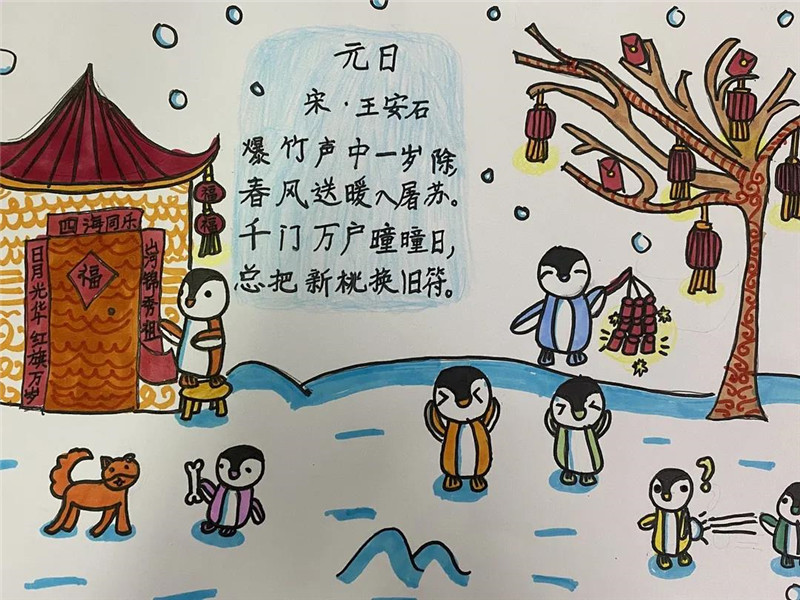 元日
宋·王安石
爆竹声中一岁除,
春风送暖入屠苏。
千门万户曈曈日,
总把新桃换旧符。
四海同乐
日月光华红旗万岁
山河锦秀祖
福
福
福
?